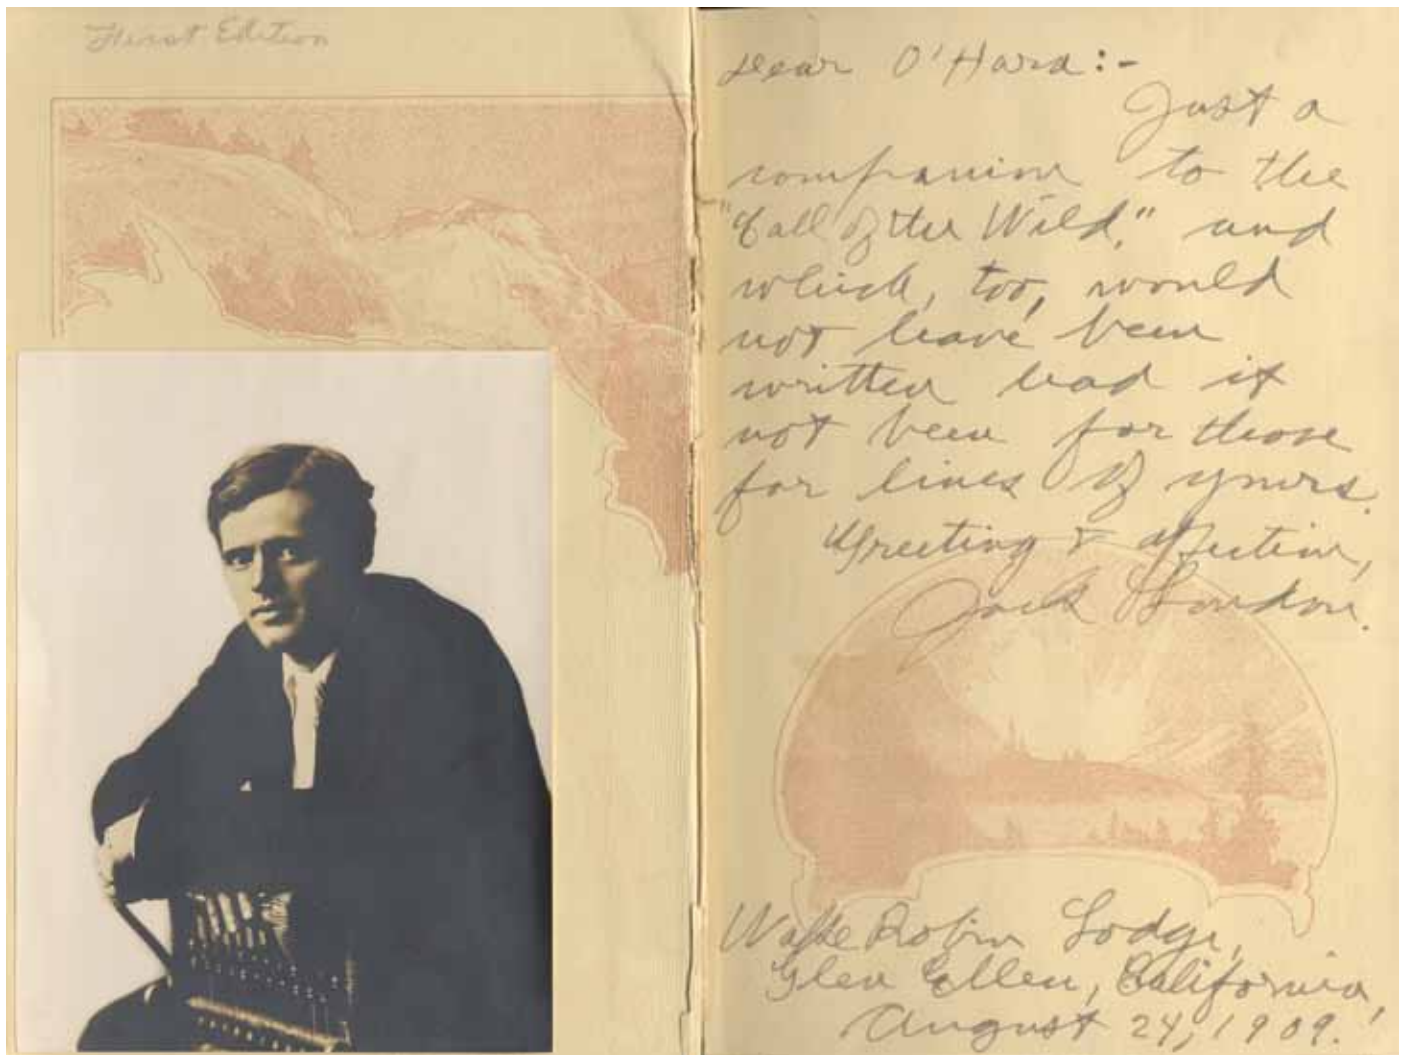 First Edition
Dear O'Hara:-
Just a
companion to the
"Call of the Wild," and
which, too, would
not have been
written had it
not been for those
for lines of yours.
Greeting & affection,
Jack London.
Wake Robin Lodge,
Glen Ellen, California,
August 24, 1909.